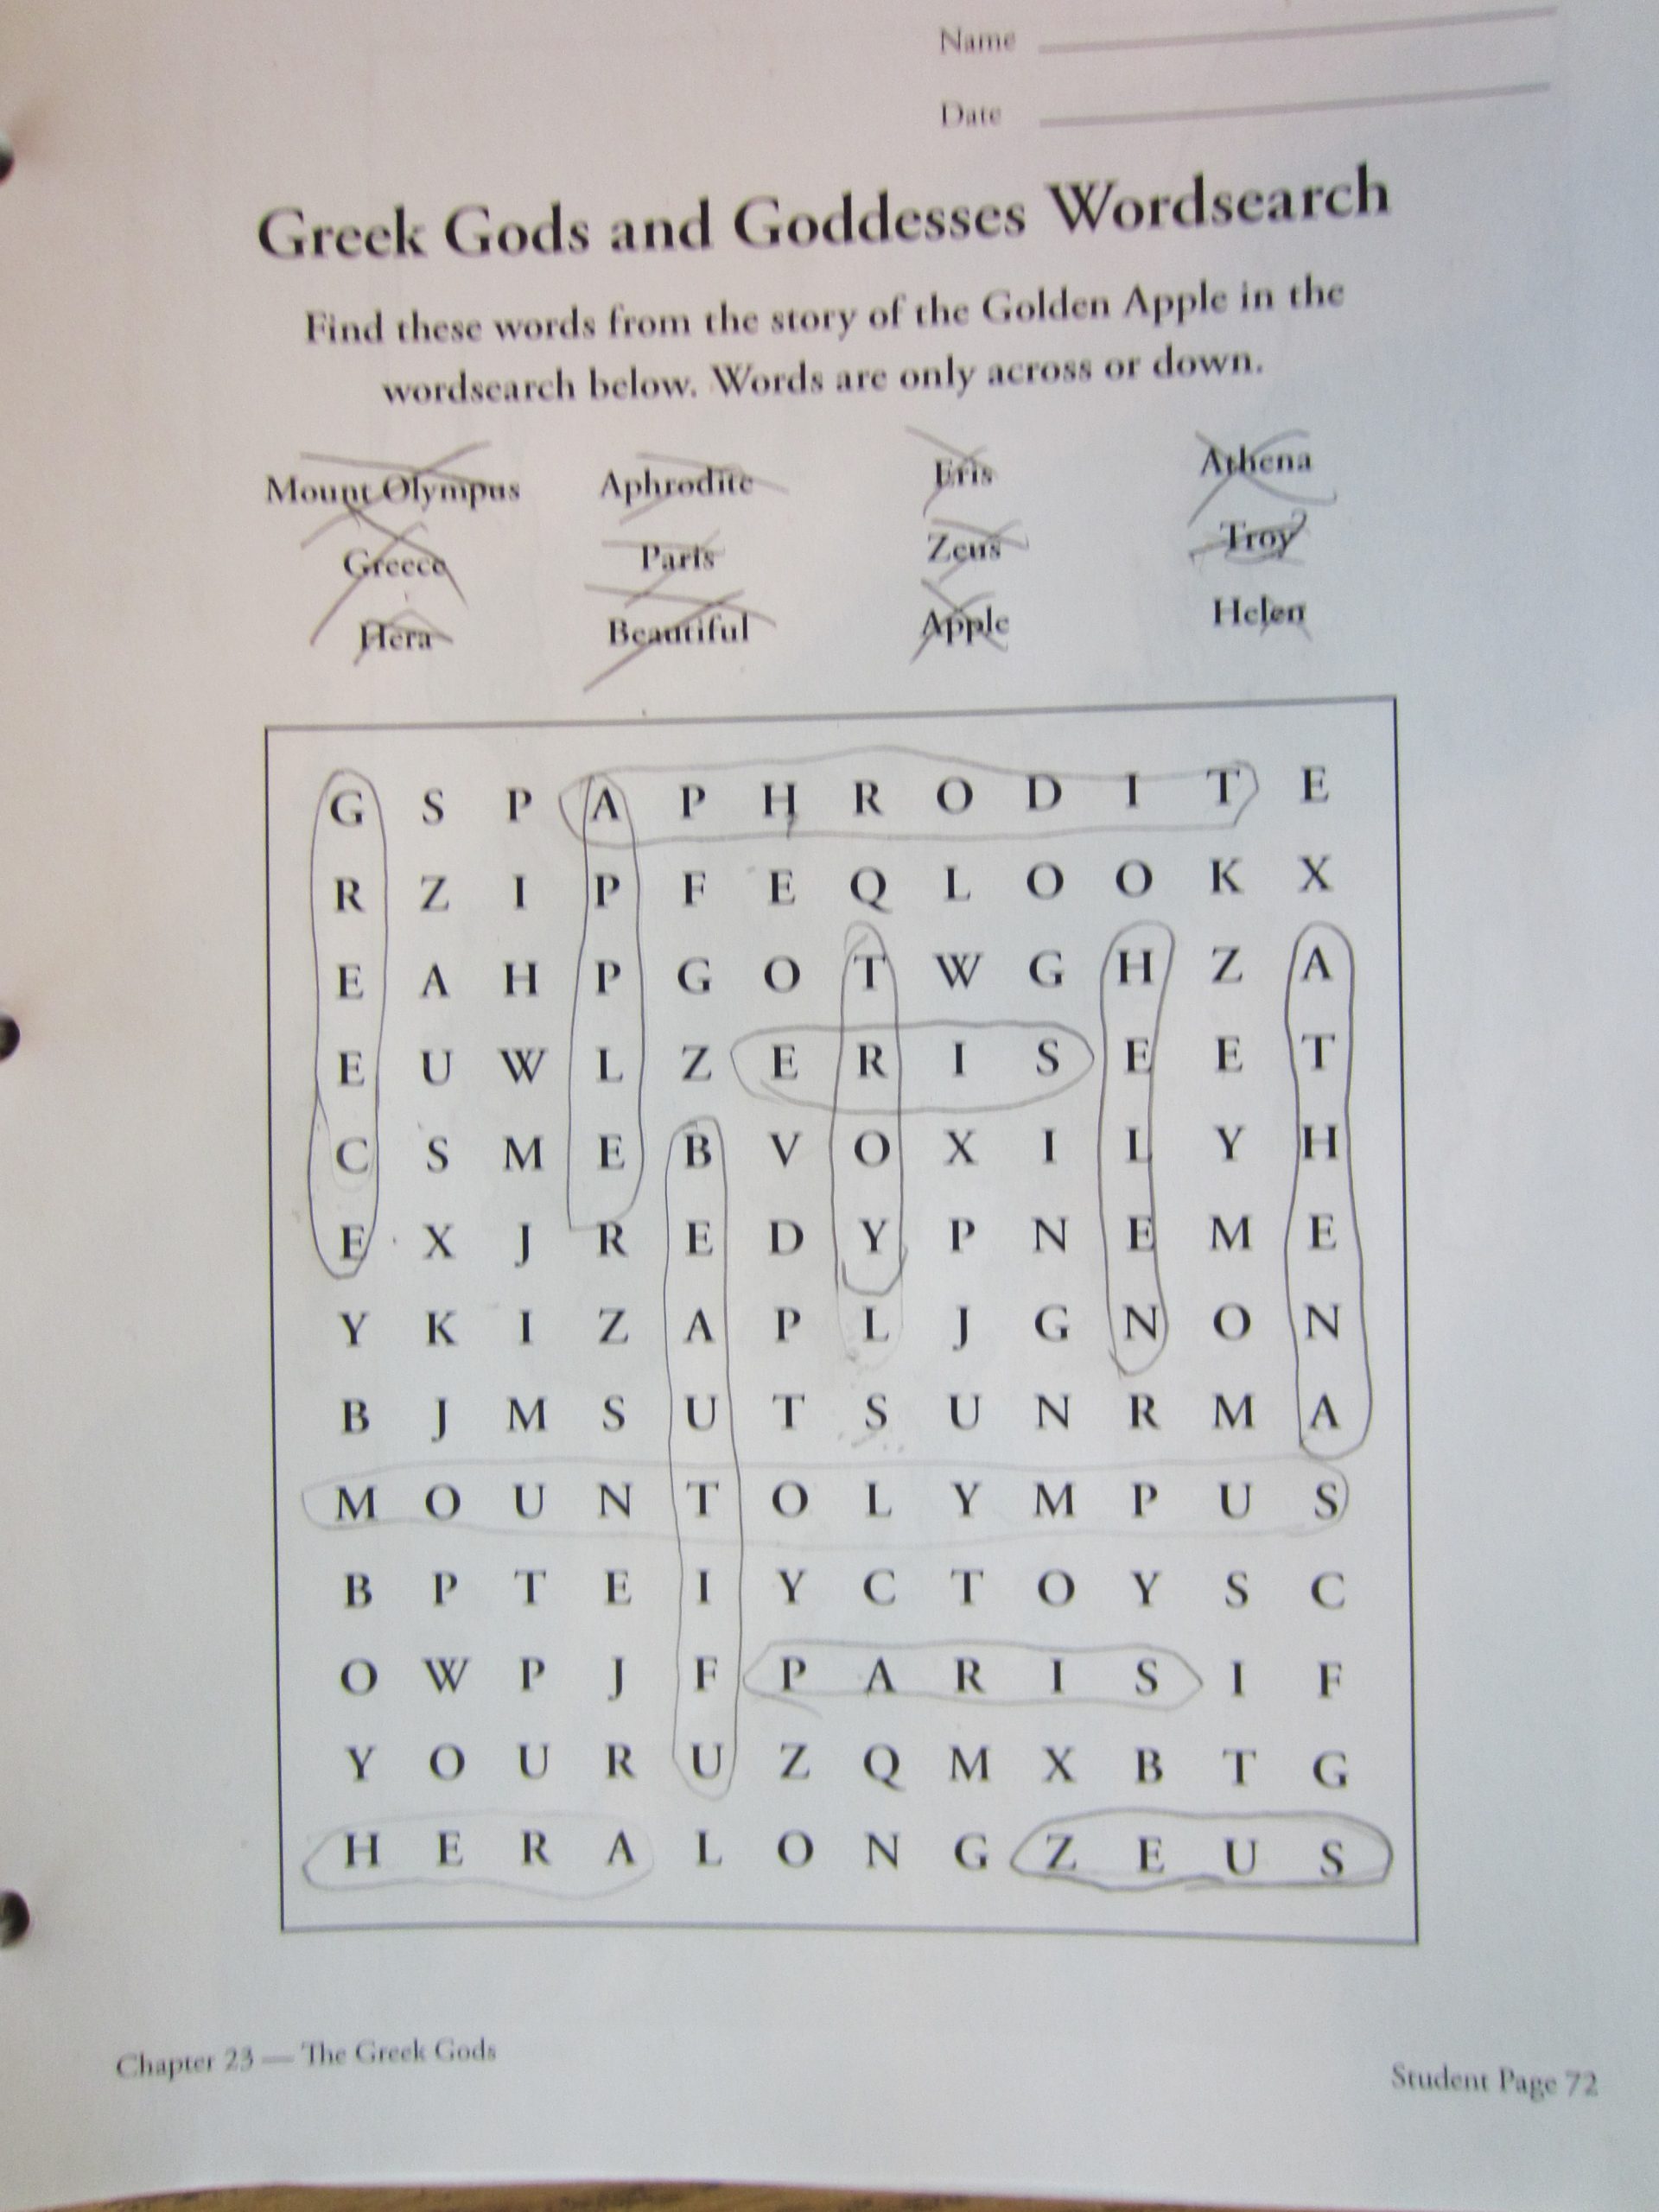 Name
Date
Greek Gods and Goddesses Wordsearch
Find these words from the story of the Golden Apple in the
wordsearch below. Words are only across or down.
Mount Olympus Aphrodite Eris Athena
Greece Paris Zeus Troy
Hera Beautiful Apple Helen
G S P A P H R O D I T E
R Z I P F E Q L O O K X
E A H P G O T W G H Z A
E U W L Z E R I S E E T
C S M E B V O X I L Y H
E X J R E D Y P N E M E
Y K I Z A P L J G N O N
B J M S U T S U N R M A
M O U N T O L Y M P U S
B P T E I Y C T O Y S C
O W P J F P A R I S I F
Y O U R U Z Q M X B T G
H E R A L O N G Z E U S
Chapter 23 — The Greek Gods
Student Page 72